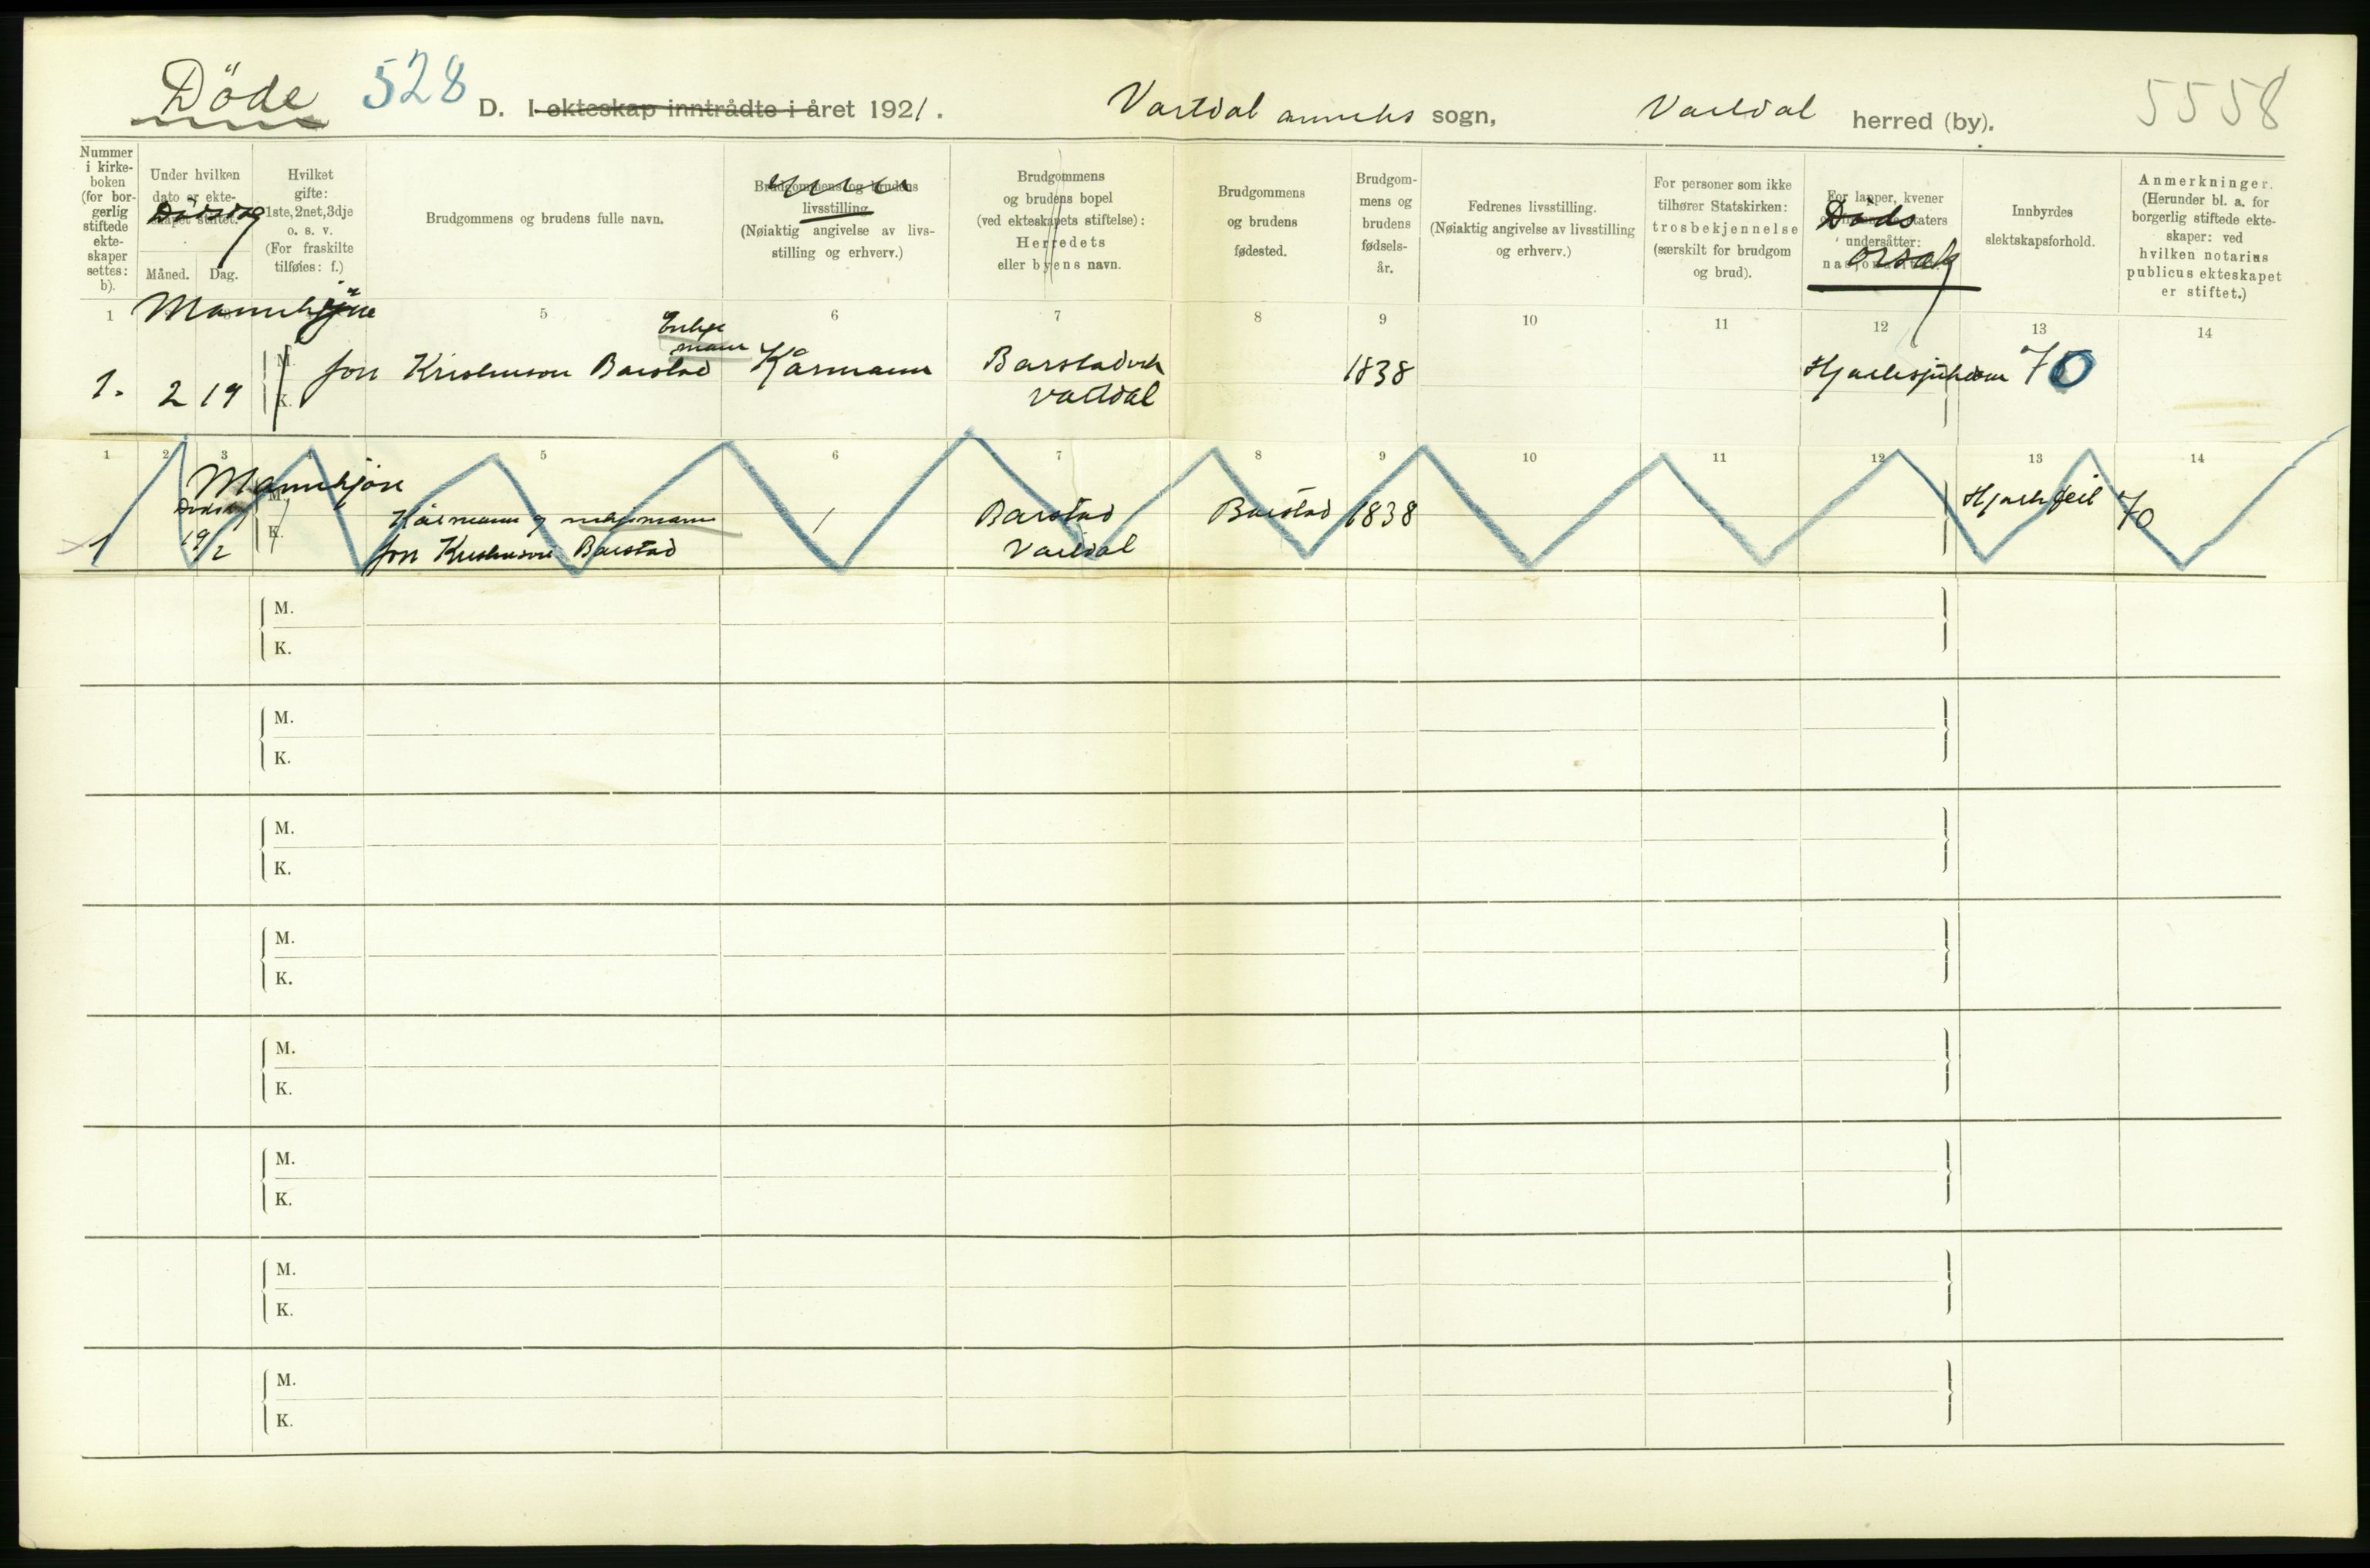 Döde 528 D. I ekteskap inntrådte i året 1921. Vartdal anneks sogn, Vartdal herred (by). 5558
Nummer
i kirke-
boken
(for bor-
gerlig
stiftede
ekte-
skaper
settes:
b).
Under hvilken
dato er ekte-
skapet stiftet.
Dödsdag
Måned. Dag.
Hvilket
gifte:
1ste, 2net, 3dje
o. s. v.
(For fraskilte
tilføies: f.)
Brudgommens og brudens fulle navn.
Brudgommens og brudens
livsstilling
(Nøiaktig angivelse av livs-
stilling og erhverv.)
Brudgommens
og brudens bopel
(ved ekteskapets stiftelse):
Herredets
eller byens navn.
Brudgommens
og brudens
fødested.
Brudgom-
mens og
brudens
fødsels-
år.
Fedrenes livsstilling.
(Nøiaktig angivelse av livsstilling
og erhverv.)
For personer som ikke
tilhører Statskirken:
trosbekjennelse
(særskilt for brudgom
og brud).
For lapper, kvener
og fremmede staters
undersåtter:
nasjonalitet.
Døds
orsak
Innbyrdes
slektskapsforhold.
Anmerkninger.
(Herunder bl. a. for
borgerlig stiftede ekte-
skaper: ved
hvilken notarius
publicus ekteskapet
er stiftet.)
1 Mannkjöne 5 6 7 8 9 10 11 12 13 14
Enkje
mann
1. 2 19 M. Jon Kristenson Barstad Kårmann Barstadvik 1838 Hjartesjukdom 70
K. Vartdal
1 2 3 4 5 6 7 8 9 10 11 12 13 14
Mannkjöne
M.
Dødsdag Kårmann og enkjemann / Barstad Barstad 1838 Hjartefeil 70
1 19/2 K. Jon Kristenson Barstad Vartdal
M.
K.
M.
K.
M.
K.
M.
K.
M.
K.
M.
K.
M.
K.
M.
K.